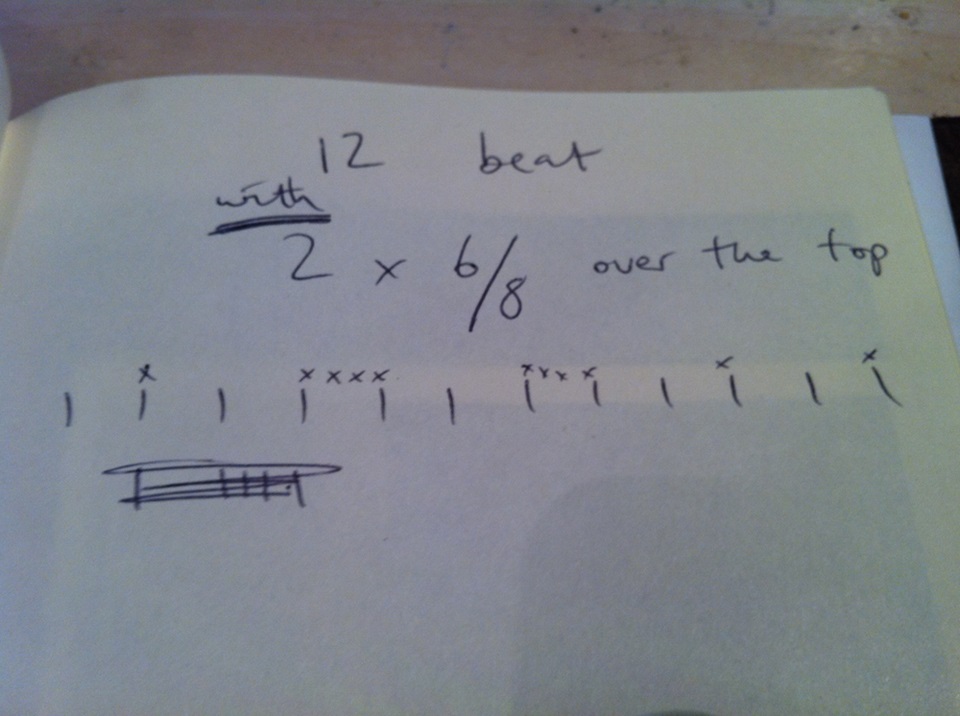 12 beat
with
2 x 6/8 over the top
x x x x x x x x x x x
| | | | | | | | | | | |